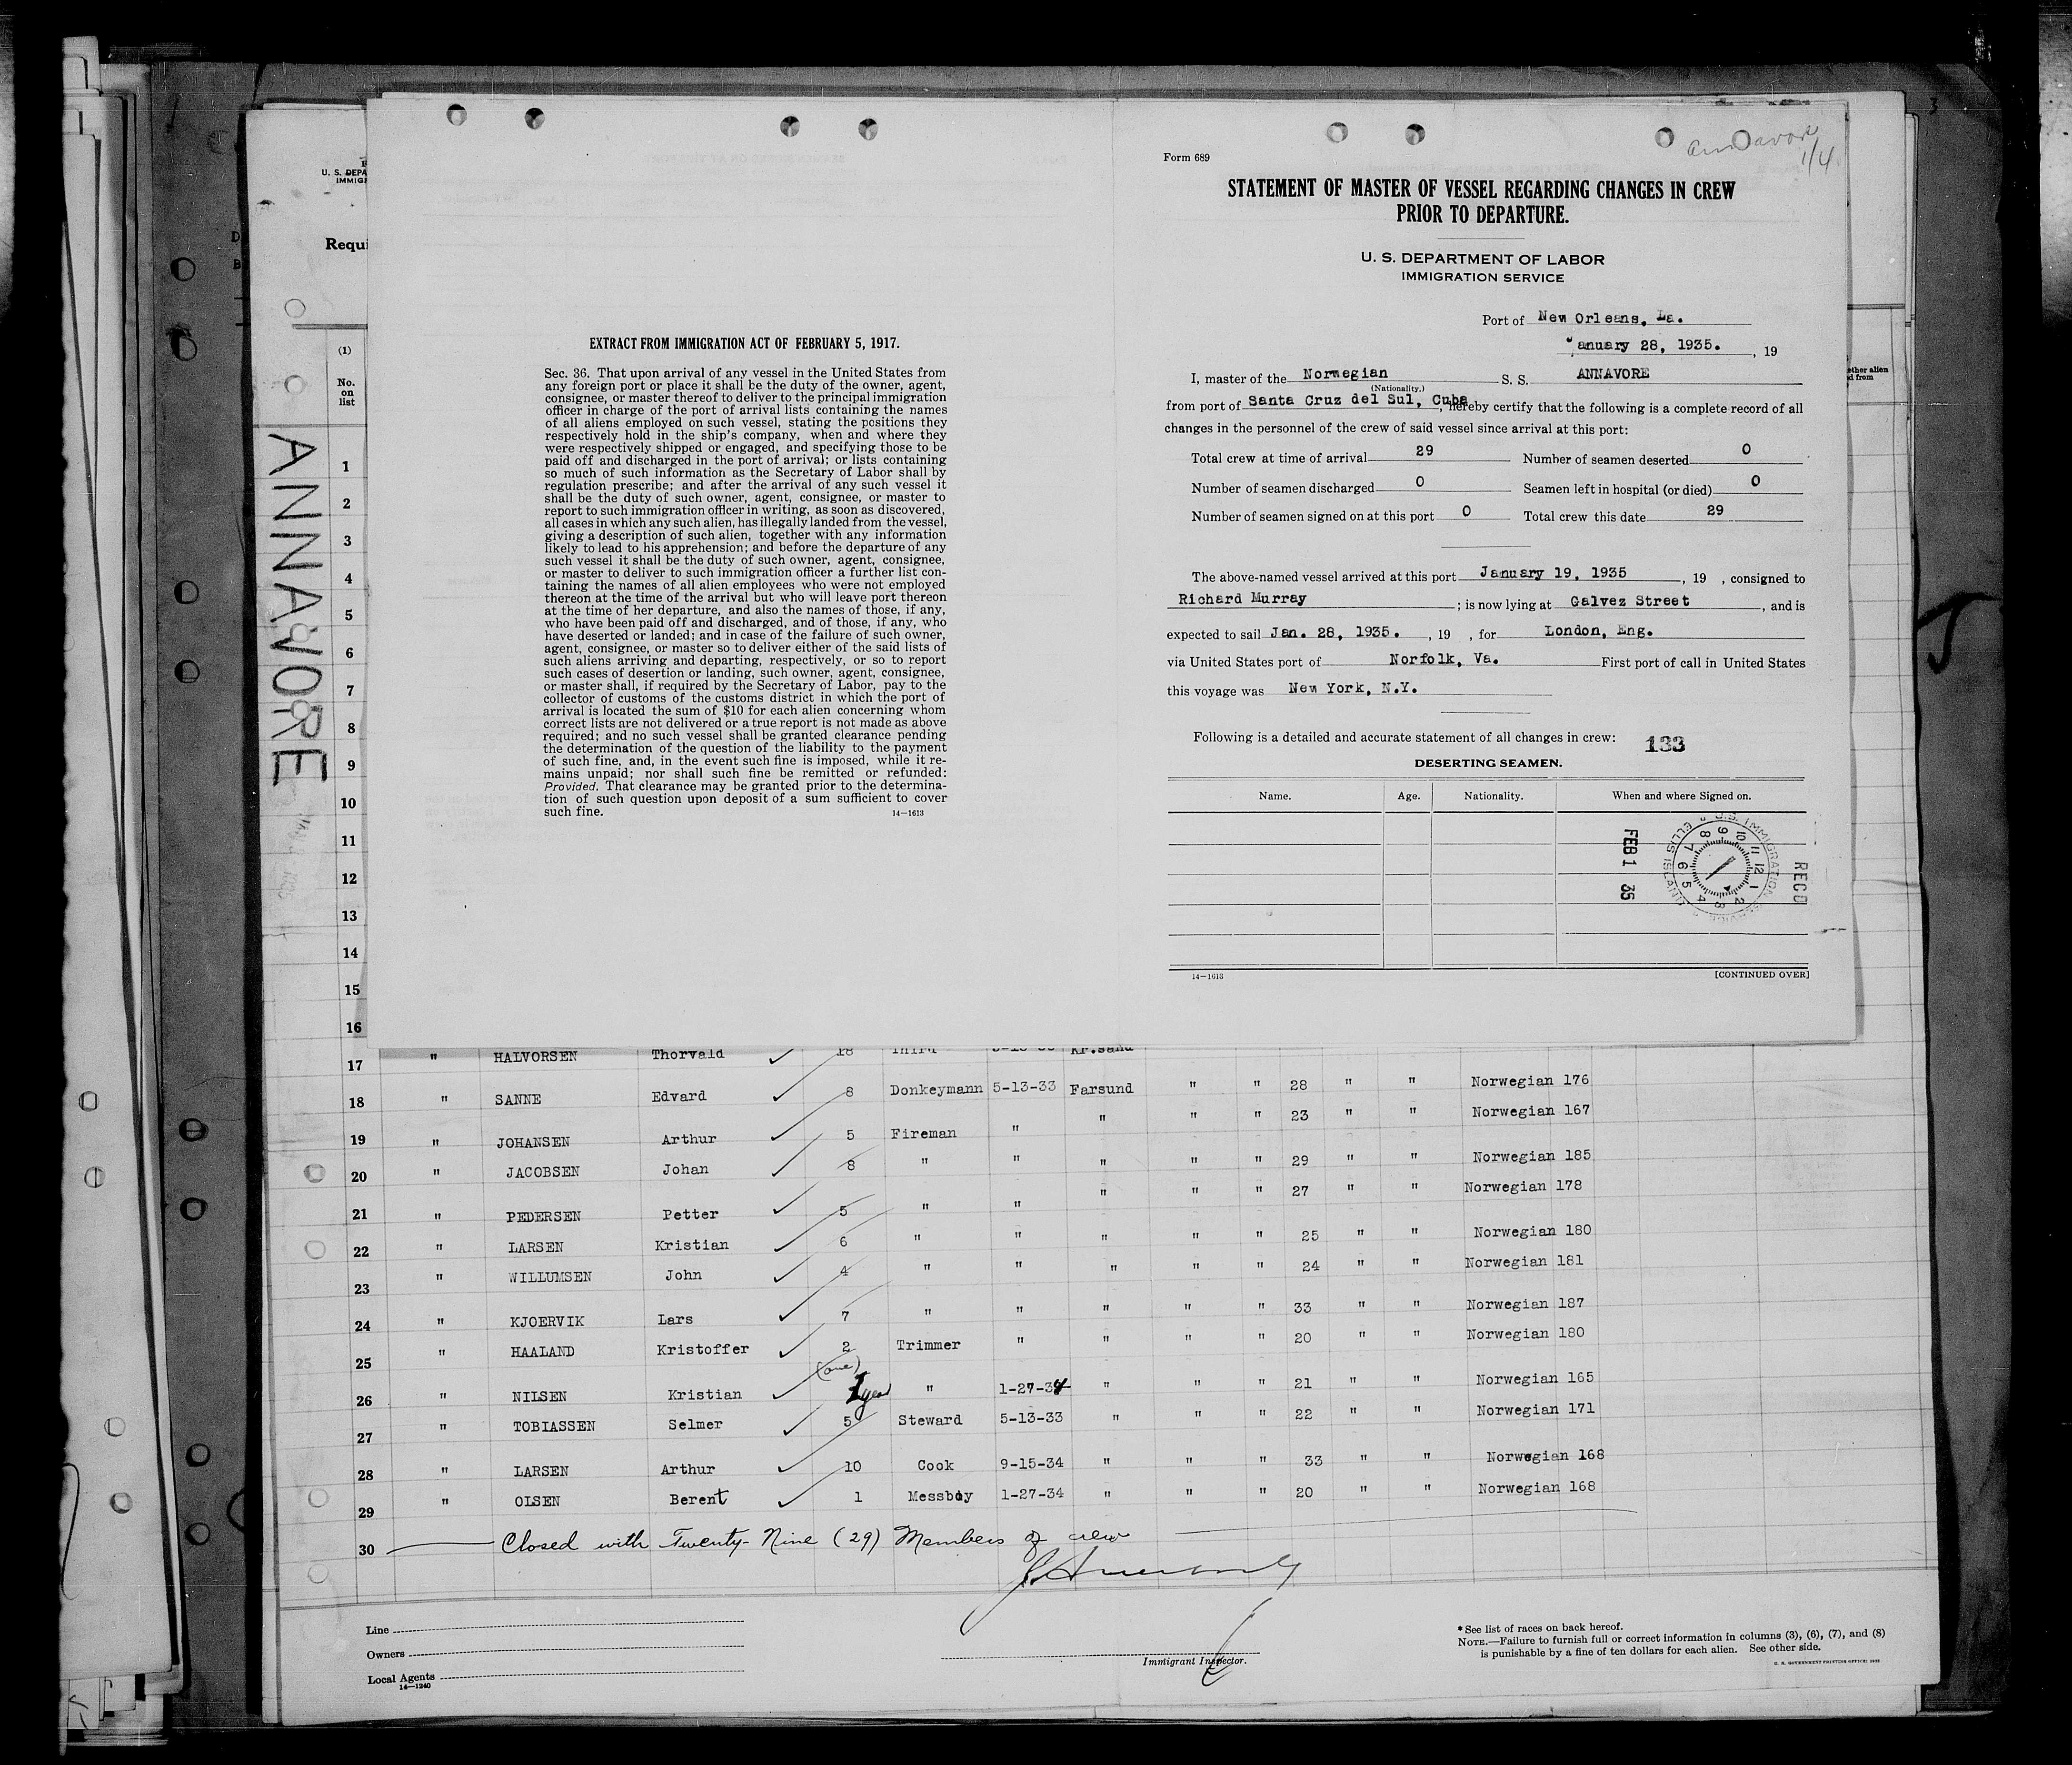 Form 689
STATEMENT OF MASTER OF VESSEL REGARDING CHANGES IN CREW
PRIOR TO DEPARTURE.
U. S. DEPARTMENT OF LABOR
IMMIGRATION SERVICE
Port of New Orleans, La.
anuary 28, 1935. , 19
I, master of the Norwegian S. S. ANNAVORE
(Nationality.)
from port of Santa Cruz del Sul, Cuba, hereby certify that the following is a complete record of all
changes in the personnel of the crew of said vessel since arrival at this port:
Total crew at time of arrival 29 Number of seamen deserted 0
Number of seamen discharged 0 Seamen left in hospital (or died) 0
Number of seamen signed on at this port 0 Total crew this date 29
The above-named vessel arrived at this port January 19, 1935 , 19 , consigned to
Richard Murray ; is now lying at Galvez Street , and is
expected to sail Jan. 28, 1935. , 19 , for London, Eng.
via United States port of Norfolk, Va. First port of call in United States
this voyage was New York, N.Y.
Following is a detailed and accurate statement of all changes in crew: 133
DESERTING SEAMEN.
Name. Age. Nationality. When and where Signed on.
FEB 1 35
U.S. IMMIGRATION SERVICE ELLIS ISLAND
RECD
14—1613 [CONTINUED OVER]
EXTRACT FROM IMMIGRATION ACT OF FEBRUARY 5, 1917.
Sec. 36. That upon arrival of any vessel in the United States from
any foreign port or place it shall be the duty of the owner, agent,
consignee, or master thereof to deliver to the principal immigration
officer in charge of the port of arrival lists containing the names
of all aliens employed on such vessel, stating the positions they
respectively hold in the ship's company, when and where they
were respectively shipped or engaged, and specifying those to be
paid off and discharged in the port of arrival; or lists containing
so much of such information as the Secretary of Labor shall by
regulation prescribe; and after the arrival of any such vessel it
shall be the duty of such owner, agent, consignee, or master to
report to such immigration officer in writing, as soon as discovered,
all cases in which any such alien, has illegally landed from the vessel,
giving a description of such alien, together with any information
likely to lead to his apprehension; and before the departure of any
such vessel it shall be the duty of such owner, agent, consignee,
or master to deliver to such immigration officer a further list con-
taining the names of all alien employees who were not employed
thereon at the time of the arrival but who will leave port thereon
at the time of her departure, and also the names of those, if any,
who have been paid off and discharged, and of those, if any, who
have deserted or landed; and in case of the failure of such owner,
agent, consignee, or master so to deliver either of the said lists of
such aliens arriving and departing, respectively, or so to report
such cases of desertion or landing, such owner, agent, consignee,
or master shall, if required by the Secretary of Labor, pay to the
collector of customs of the customs district in which the port of
arrival is located the sum of $10 for each alien concerning whom
correct lists are not delivered or a true report is not made as above
required; and no such vessel shall be granted clearance pending
the determination of the question of the liability to the payment
of such fine, and, in the event such fine is imposed, while it re-
mains unpaid; nor shall such fine be remitted or refunded:
Provided, That clearance may be granted prior to the determina-
tion of such question upon deposit of a sum sufficient to cover
such fine. 14—1613
U. S. DEPA
IMMIGR
Requi
(1)
No.
on
list
ANNAVORE
1
2
3
4
5
6
7
8
9
10
11
12
13
14
15
16
17 " HALVORSEN Thorvald 18 Third Kr.sand
18 " SANNE Edvard 8 Donkeymann 5-13-33 Farsund " " 28 " " Norwegian 176
19 " JOHANSEN Arthur 5 Fireman " " " " 23 " " Norwegian 167
20 " JACOBSEN Johan 8 " " " " " 29 " " Norwegian 185
21 " PEDERSEN Petter 5 " " " " " 27 " " Norwegian 178
22 " LARSEN Kristian 6 " " " " " 25 " " Norwegian 180
23 " WILLUMSEN John 4 " " " " " 24 " " Norwegian 181
24 " KJOERVIK Lars 7 " " " " " 33 " " Norwegian 187
25 " HAALAND Kristoffer 2 Trimmer " " " " 20 " " Norwegian 180
26 " NILSEN Kristian (one) 1 year " 1-27-34 " " " 21 " " Norwegian 165
27 " TOBIASSEN Selmer 5 Steward 5-13-33 " " " 22 " " Norwegian 171
28 " LARSEN Arthur 10 Cook 9-15-34 " " " 33 " " Norwegian 168
29 " OLSEN Berent 1 Messboy 1-27-34 " " " 20 " " Norwegian 168
30 Closed with Twenty-Nine (29) Members of crew
Line
Owners
Local Agents
14—1240
Immigrant Inspector.
* See list of races on back hereof.
NOTE.—Failure to furnish full or correct information in columns (3), (6), (7), and (8)
is punishable by a fine of ten dollars for each alien. See other side.
U. S. GOVERNMENT PRINTING OFFICE: 1932